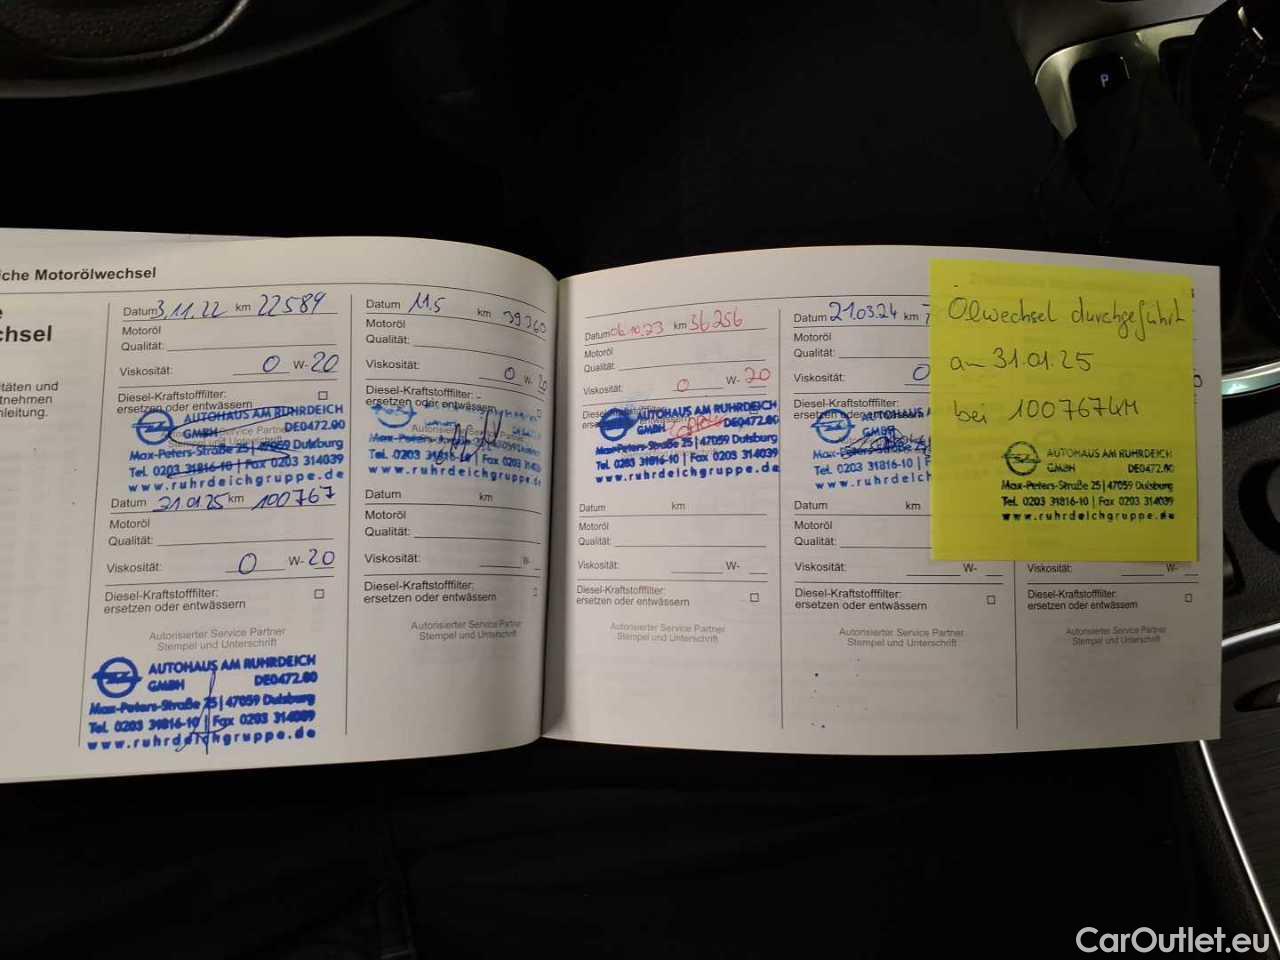 iche Motorölwechsel
chsel
itäten und
tnehmen
nleitung.
Datum 3.11.22 km 22589
Motoröl
Qualität:
Viskosität: 0 W- 20
Diesel-Kraftstofffilter:
ersetzen oder entwässern
Autorisierter Service Partner
Stempel und Unterschrift
AUTOHAUS AM RUHRDEICH
GMBH DE0472.00
Max-Peters-Straße 25 | 47059 Duisburg
Tel. 0203 31816-10 | Fax 0203 314039
www.ruhrdeichgruppe.de
Datum 31.01.25 km 100767
Motoröl
Qualität:
Viskosität: 0 W- 20
Diesel-Kraftstofffilter:
ersetzen oder entwässern
Autorisierter Service Partner
Stempel und Unterschrift
AUTOHAUS AM RUHRDEICH
GMBH DE0472.00
Max-Peters-Straße 25 | 47059 Duisburg
Tel. 0203 31816-10 | Fax 0203 314039
www.ruhrdeichgruppe.de
Datum 11.5 km 39360
Motoröl
Qualität:
Viskosität: 0 W- 20
Diesel-Kraftstofffilter:
ersetzen oder entwässern
Tel. 0203 31816-10 | Fax 0203 314039
www.ruhrdeichgruppe.de
Datum km
Motoröl
Qualität:
Viskosität: W-
Diesel-Kraftstofffilter:
ersetzen oder entwässern
Autorisierter Service Partner
Stempel und Unterschrift
Datum 06.10.23 km 56256
Motoröl
Qualität:
Viskosität: 0 W- 20
AUTOHAUS AM RUHRDEICH
GMBH DE0472.00
Max-Peters-Straße 25 | 47059 Duisburg
Tel. 0203 31816-10 | Fax 0203 314039
www.ruhrdeichgruppe.de
Datum km
Motoröl
Qualität:
Viskosität: W-
Diesel-Kraftstofffilter:
ersetzen oder entwässern
Autorisierter Service Partner
Stempel und Unterschrift
Datum 21.03.24 km 7
Motoröl
Qualität:
Viskosität: 0
Diesel-Kraftstofffilter:
ersetzen oder entwässern
AUTOHAUS AM
GMBH
Max-Peters-Straße 25
Tel. 0203 31816-10 | F
www.ruhrdeichg
Datum km
Motoröl
Qualität:
Viskosität: W-
Diesel-Kraftstofffilter:
ersetzen oder entwässern
Autorisierter Service Partner
Stempel und Unterschrift
Ölwechsel durchgeführt
am 31.01.25
bei 100767KM
AUTOHAUS AM RUHRDEICH
GMBH DE0472.00
Max-Peters-Straße 25 | 47059 Duisburg
Tel. 0203 31816-10 | Fax 0203 314039
www.ruhrdeichgruppe.de
Viskosität: W-
Diesel-Kraftstofffilter:
ersetzen oder entwässern
Autorisierter Service Partner
Stempel und Unterschrift
P
CarOutlet.eu